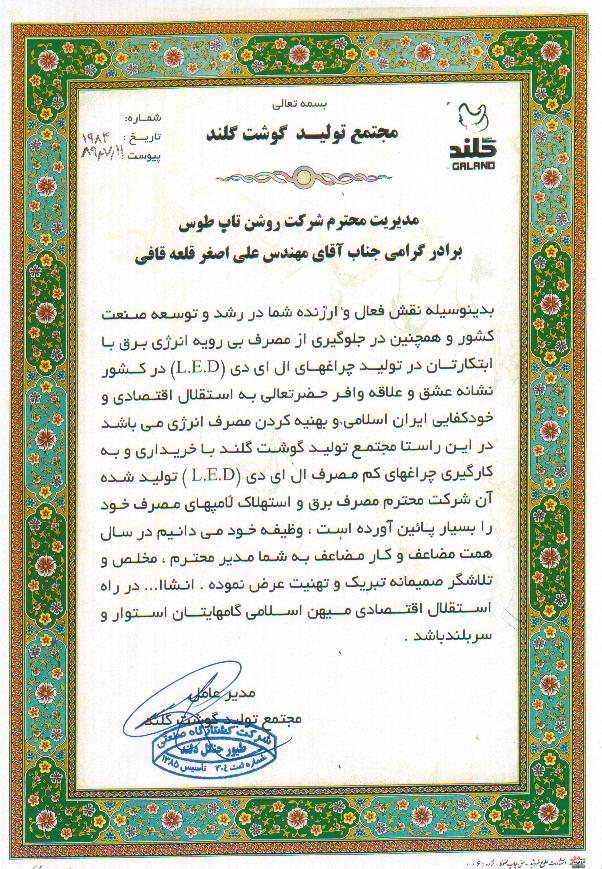 بسمه تعالی
مجتمع تولید گوشت گلند
گلند
GALAND
شماره:
۱۹۸۴
تاریخ :
۸۹/۷/۱۱
پیوست
مدیریت محترم شرکت روشن تاپ طوس
برادر گرامی جناب آقای مهندس علی اصغر قلعه قافی
بدینوسیله نقش فعال و ارزنده شما در رشد و توسعه صنعت
کشور و همچنین در جلوگیری از مصرف بی رویه انرژی برق با
ابتکارتان در تولید چراغهای ال ای دی (L.E.D) در کشور
نشانه عشق و علاقه وافر حضرتعالی به استقلال اقتصادی و
خودکفایی ایران اسلامی.و بهنیه کردن مصرف انرژی می باشد
در این راستا مجتمع تولید گوشت گلند با خریداری و به
کارگیری چراغهای کم مصرف ال ای دی (L.E.D ) تولید شده
آن شرکت محترم مصرف برق و استهلاک لامپهای مصرف خود
را بسیار پائین آورده است ، وظیفه خود می دانیم در سال
همت مضاعف و کار مضاعف به شما مدیر محترم ، مخلص و
تلاشگر صمیمانه تبریک و تهنیت عرض نموده . انشاا... در راه
استقلال اقتصادی میهن اسلامی گامهایتان استوار و
سربلندباشد .
مدیر عامل
مجتمع تولید گوشت گلند
شرکت کشتارگاه صنعتی
طیور جنگل گلند
شماره ثبت ۳۰۴ تاسیس ۱۳۸۵